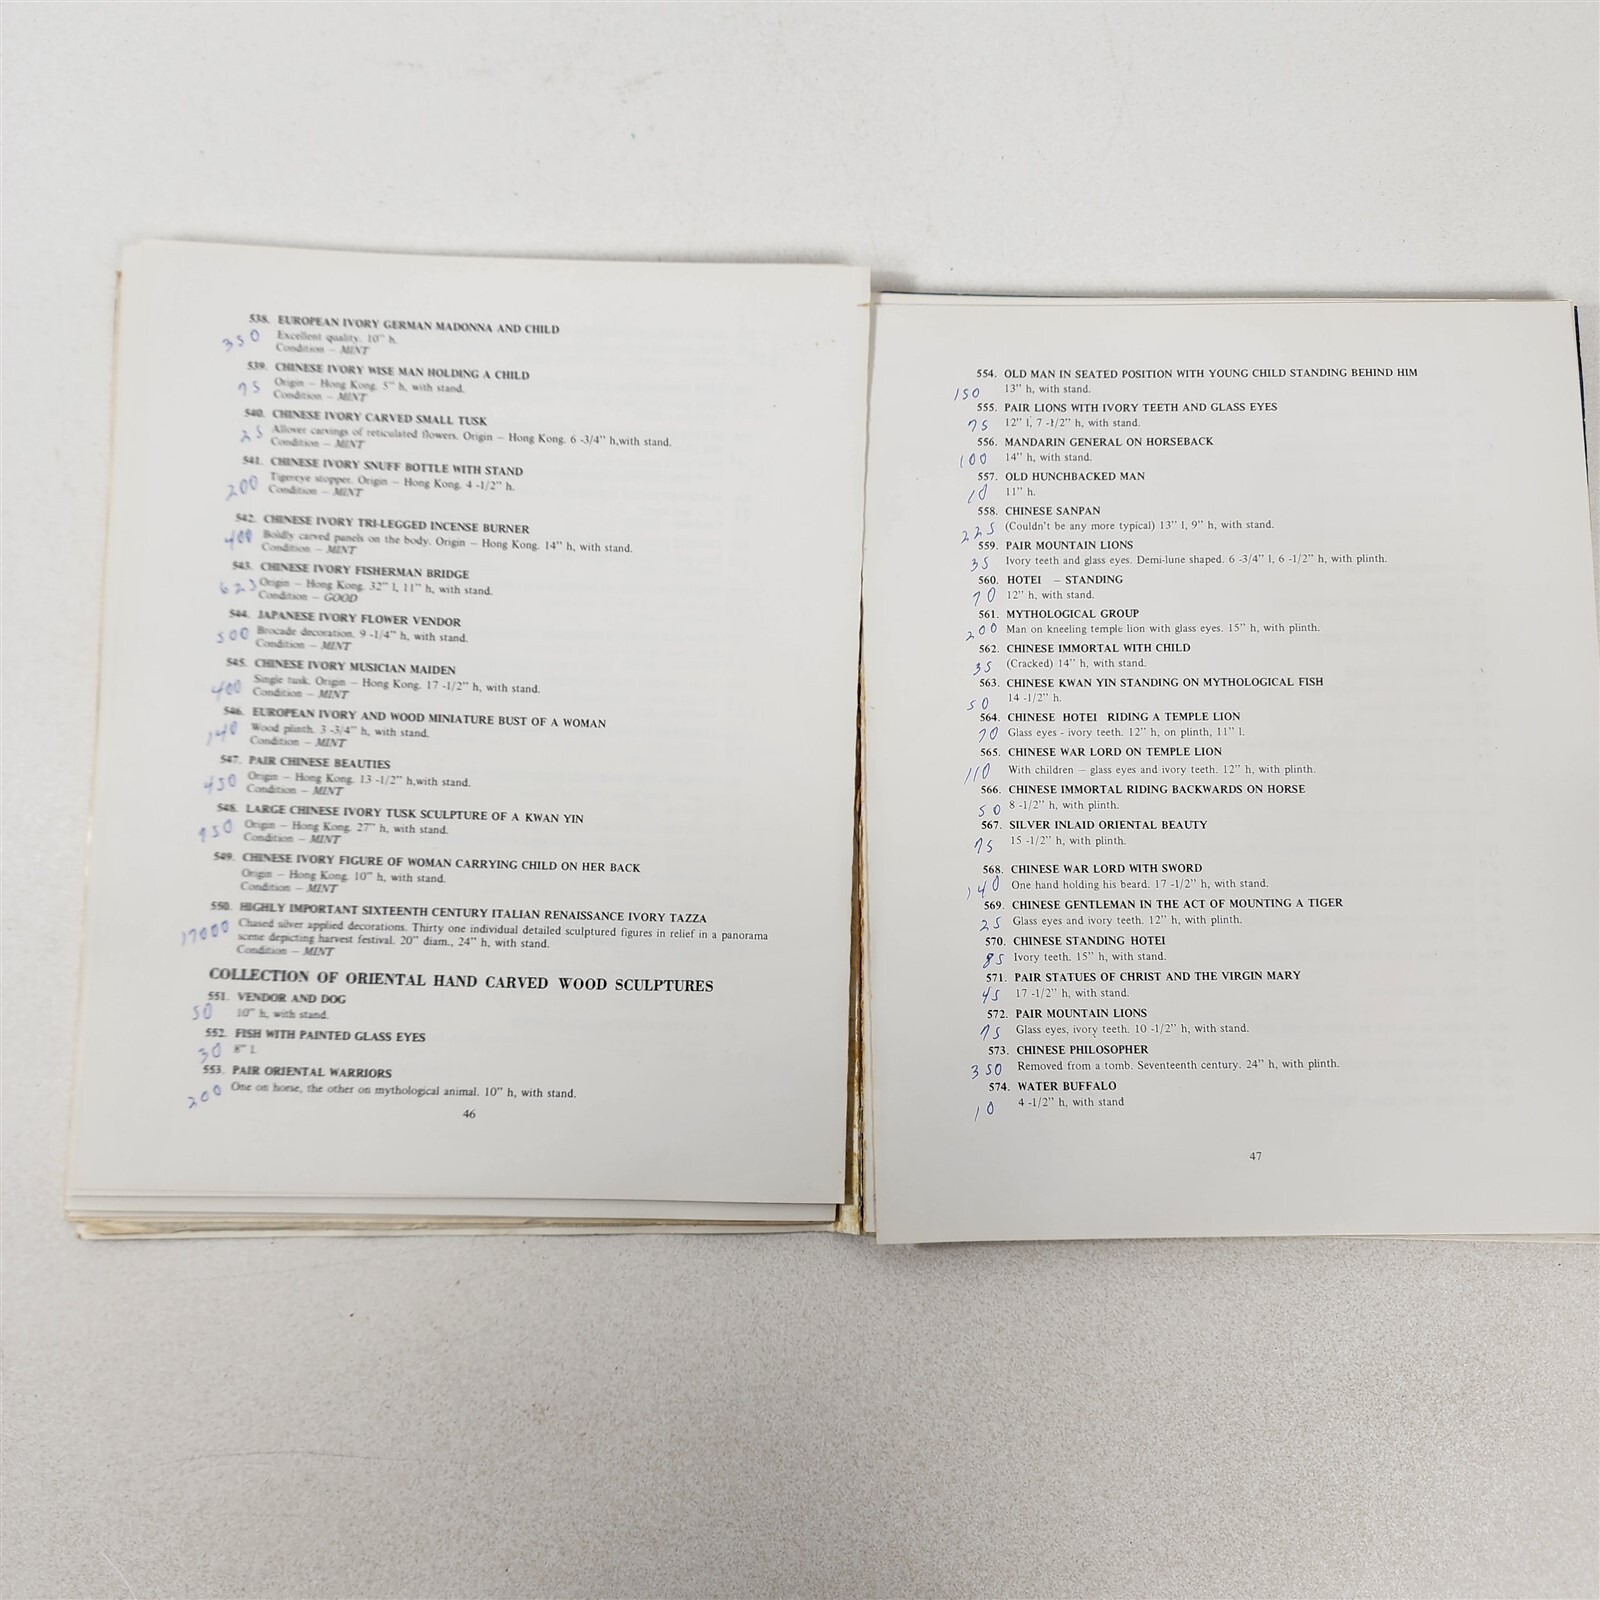 538. EUROPEAN IVORY GERMAN MADONNA AND CHILD
350 Excellent quality. 10" h.
Condition – MINT
539. CHINESE IVORY WISE MAN HOLDING A CHILD
75 Origin – Hong Kong. 5" h, with stand.
Condition – MINT
540. CHINESE IVORY CARVED SMALL TUSK
25 Allover carvings of reticulated flowers. Origin – Hong Kong. 6 -3/4" h,with stand.
Condition – MINT
541. CHINESE IVORY SNUFF BOTTLE WITH STAND
200 Tigereye stopper. Origin – Hong Kong. 4 -1/2" h.
Condition – MINT
542. CHINESE IVORY TRI-LEGGED INCENSE BURNER
400 Boldly carved panels on the body. Origin – Hong Kong. 14" h, with stand.
Condition – MINT
543. CHINESE IVORY FISHERMAN BRIDGE
Origin – Hong Kong. 32" l, 11" h, with stand.
Condition – GOOD
544. JAPANESE IVORY FLOWER VENDOR
500 Brocade decoration. 9 -1/4" h, with stand.
Condition – MINT
545. CHINESE IVORY MUSICIAN MAIDEN
400 Single tusk. Origin – Hong Kong. 17 -1/2" h, with stand.
Condition – MINT
546. EUROPEAN IVORY AND WOOD MINIATURE BUST OF A WOMAN
140 Wood plinth. 3 -3/4" h, with stand.
Condition – MINT
547. PAIR CHINESE BEAUTIES
450 Origin – Hong Kong. 13 -1/2" h,with stand.
Condition – MINT
548. LARGE CHINESE IVORY TUSK SCULPTURE OF A KWAN YIN
Origin – Hong Kong. 27" h, with stand.
Condition – MINT
549. CHINESE IVORY FIGURE OF WOMAN CARRYING CHILD ON HER BACK
Origin – Hong Kong. 10" h, with stand.
Condition – MINT
550. HIGHLY IMPORTANT SIXTEENTH CENTURY ITALIAN RENAISSANCE IVORY TAZZA
17000 Chased silver applied decorations. Thirty one individual detailed sculptured figures in relief in a panorama
scene depicting harvest festival. 20" diam., 24" h, with stand.
Condition – MINT
COLLECTION OF ORIENTAL HAND CARVED WOOD SCULPTURES
551. VENDOR AND DOG
50 10" h, with stand.
552. FISH WITH PAINTED GLASS EYES
30 8" l.
553. PAIR ORIENTAL WARRIORS
200 One on horse, the other on mythological animal. 10" h, with stand.
46
554. OLD MAN IN SEATED POSITION WITH YOUNG CHILD STANDING BEHIND HIM
150 13" h, with stand.
555. PAIR LIONS WITH IVORY TEETH AND GLASS EYES
75 12" l, 7 -1/2" h, with stand.
556. MANDARIN GENERAL ON HORSEBACK
100 14" h, with stand.
557. OLD HUNCHBACKED MAN
10 11" h.
558. CHINESE SANPAN
225 (Couldn't be any more typical) 13" l, 9" h, with stand.
559. PAIR MOUNTAIN LIONS
35 Ivory teeth and glass eyes. Demi-lune shaped. 6 -3/4" l, 6 -1/2" h, with plinth.
560. HOTEI – STANDING
70 12" h, with stand.
561. MYTHOLOGICAL GROUP
200 Man on kneeling temple lion with glass eyes. 15" h, with plinth.
562. CHINESE IMMORTAL WITH CHILD
35 (Cracked) 14" h, with stand.
563. CHINESE KWAN YIN STANDING ON MYTHOLOGICAL FISH
50 14 -1/2" h.
564. CHINESE HOTEI RIDING A TEMPLE LION
70 Glass eyes - ivory teeth. 12" h, on plinth, 11" l.
565. CHINESE WAR LORD ON TEMPLE LION
110 With children – glass eyes and ivory teeth. 12" h, with plinth.
566. CHINESE IMMORTAL RIDING BACKWARDS ON HORSE
50 8 -1/2" h, with plinth.
567. SILVER INLAID ORIENTAL BEAUTY
75 15 -1/2" h, with plinth.
568. CHINESE WAR LORD WITH SWORD
140 One hand holding his beard. 17 -1/2" h, with stand.
569. CHINESE GENTLEMAN IN THE ACT OF MOUNTING A TIGER
25 Glass eyes and ivory teeth. 12" h, with plinth.
570. CHINESE STANDING HOTEI
85 Ivory teeth. 15" h, with stand.
571. PAIR STATUES OF CHRIST AND THE VIRGIN MARY
45 17 -1/2" h, with stand.
572. PAIR MOUNTAIN LIONS
75 Glass eyes, ivory teeth. 10 -1/2" h, with stand.
573. CHINESE PHILOSOPHER
350 Removed from a tomb. Seventeenth century. 24" h, with plinth.
574. WATER BUFFALO
10 4 -1/2" h, with stand
47